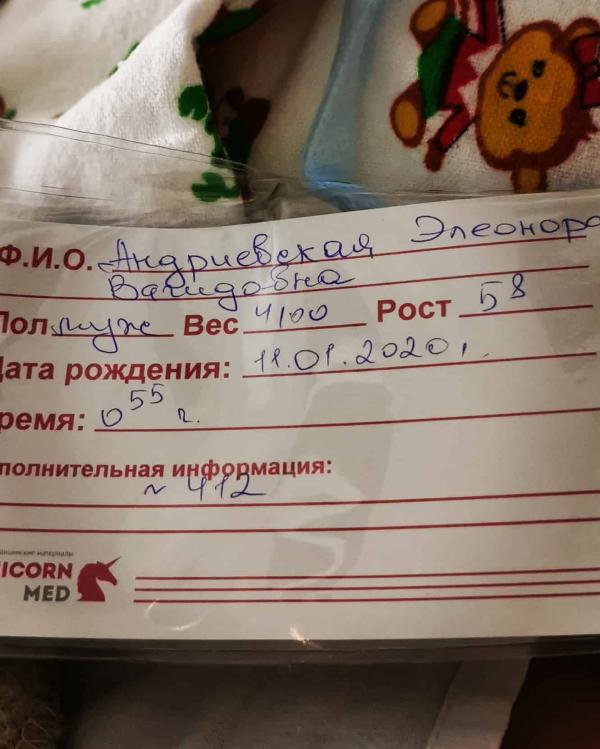 Ф.И.О. Андриевская Элеонора
Вагидовна
Пол муж Вес 4100 Рост 58
Дата рождения: 11.01.2020 г.
ремя: 0 55 г.
полнительная информация:
~ 412
материалы
ICORN
MED